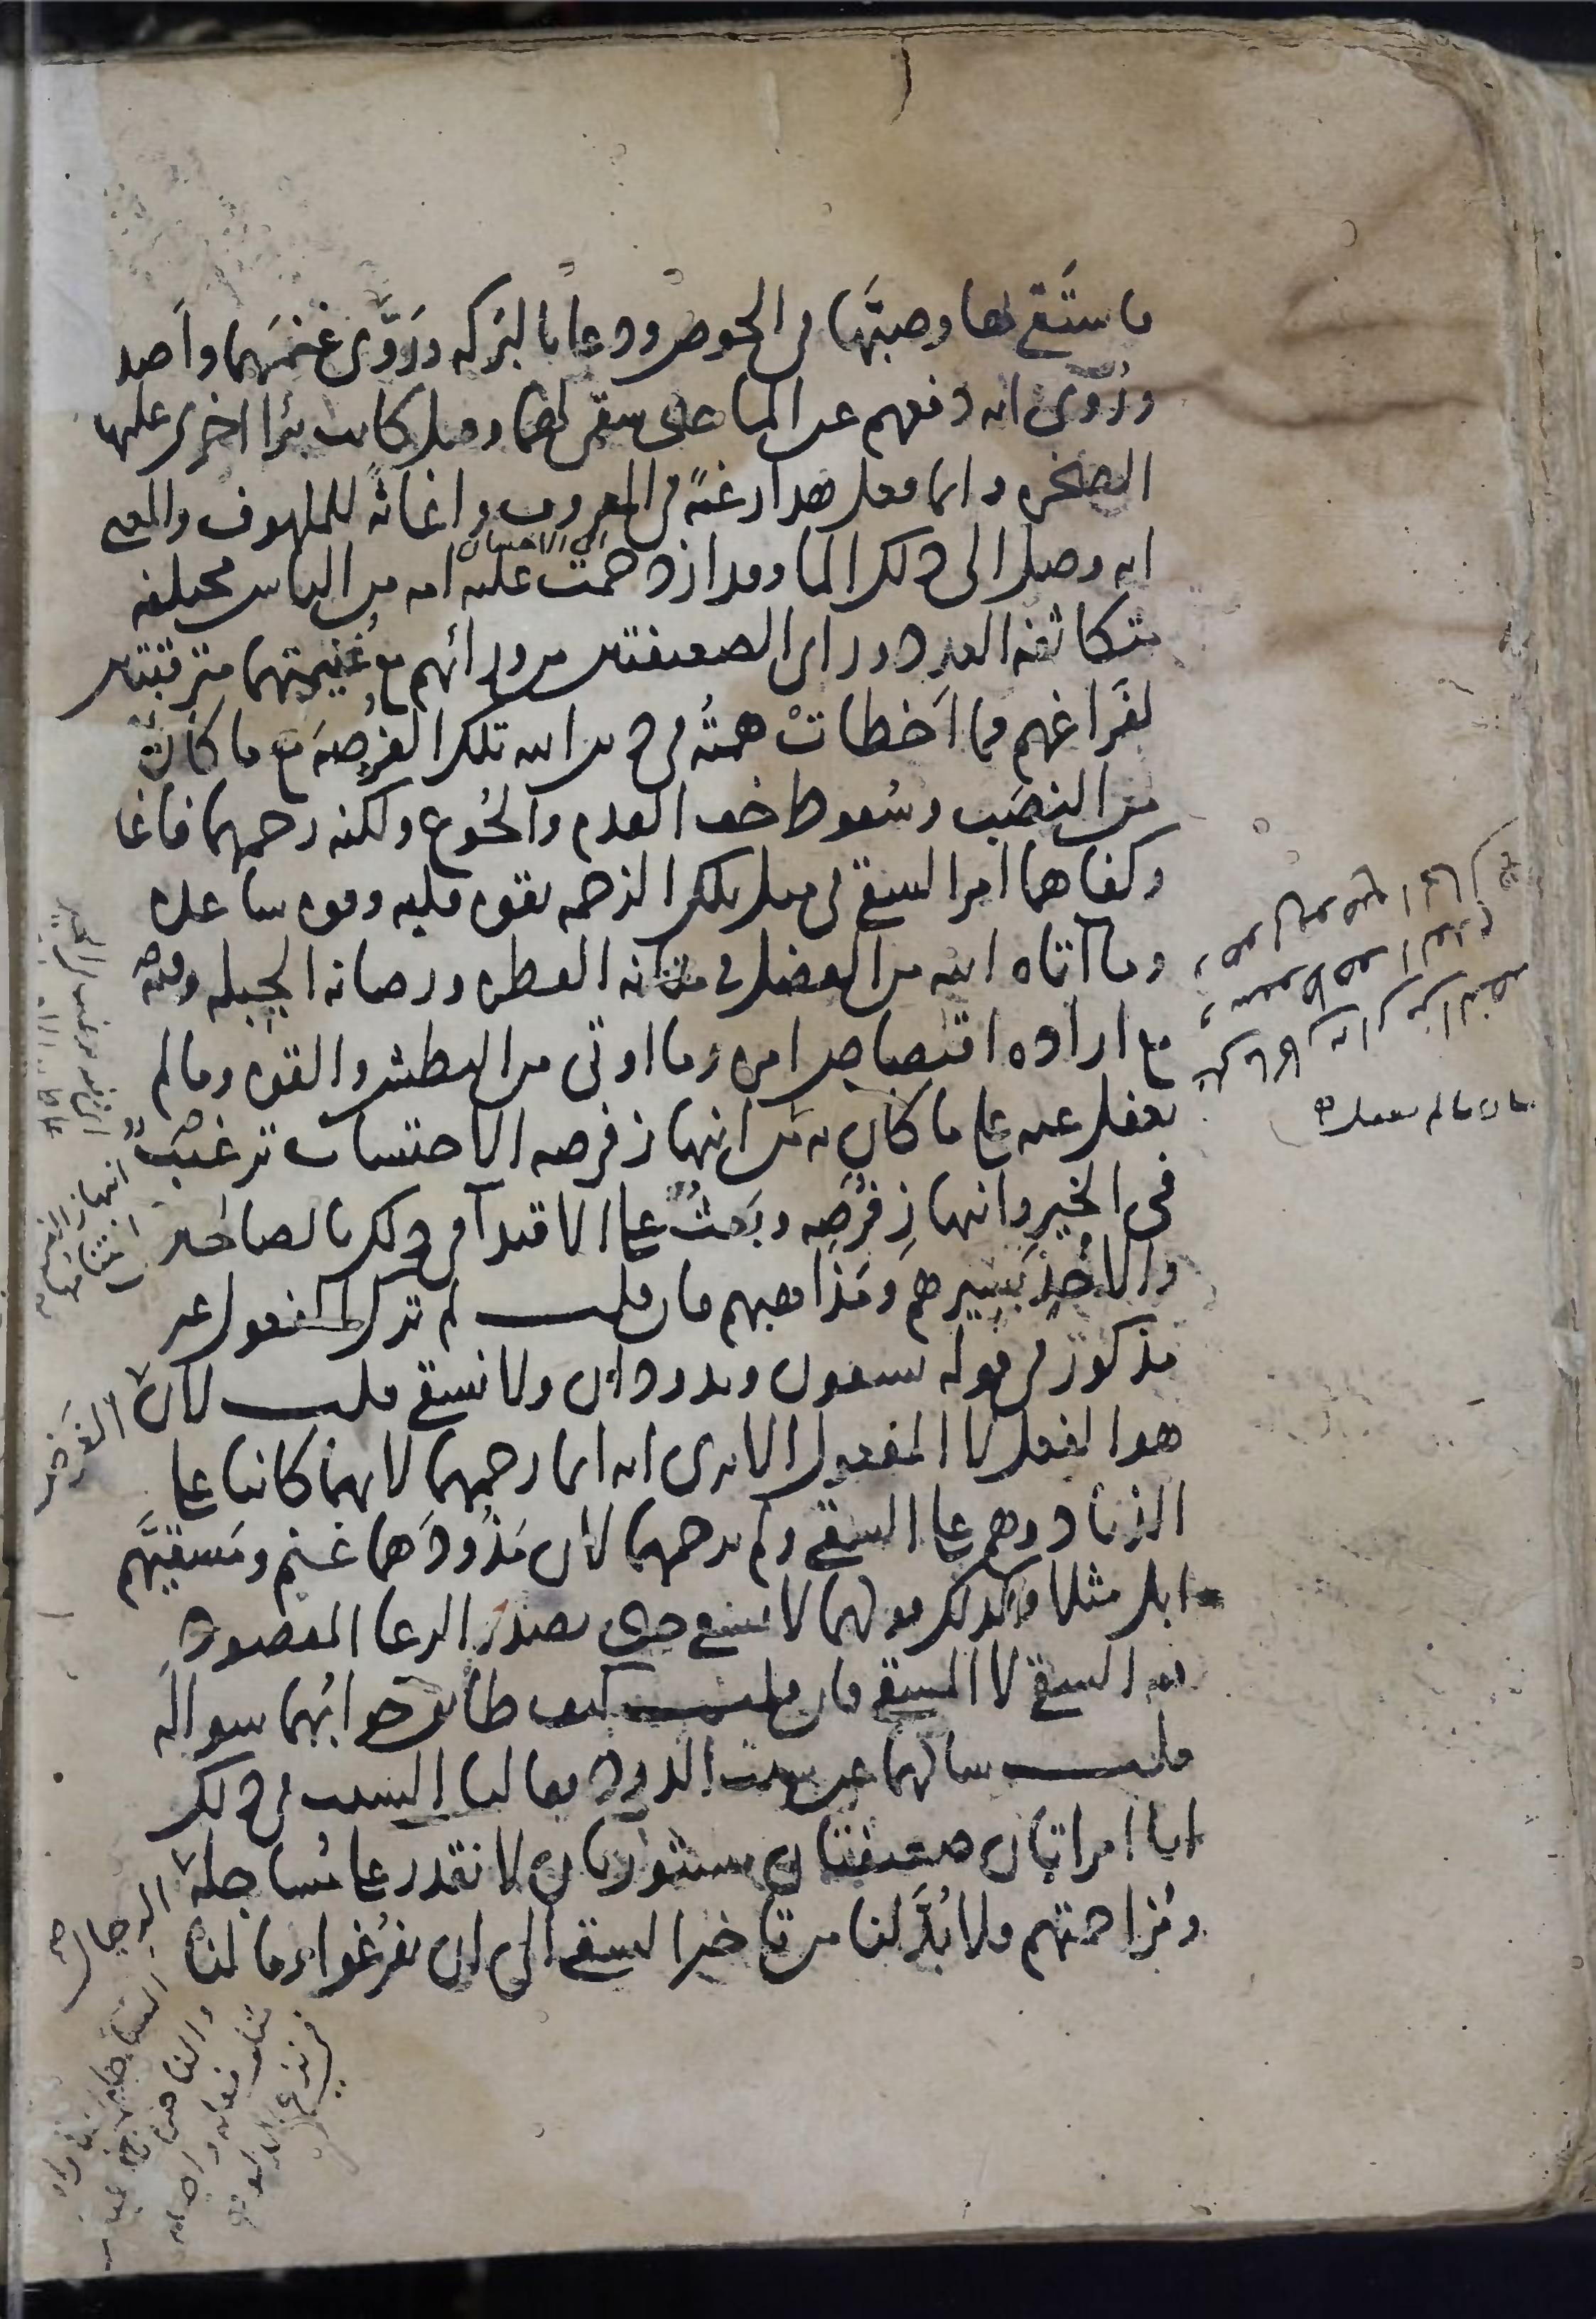 فاستقى بها وصبها في الحوض ودعا بالبركه وروى غنمهما واصد
وروى انه دفعهم عن الما حتى سقى لهما وقيل كانت بئرا اخرى عليها
الصخره وانما فعل هذا رغبة في المعروف واغاثة للملهوف والمعنى
انه وصل الى ذلك الما وقد ازدحمت عليه امه من الناس مختلفه
متكاثفه العدد وراى الضعيفتين من ورائهم مع غنيمتهما مترقبتين
لفراغهم فما اخطات همته في دين الله تلك الفرصه مع ما كان به
من النصب وسقوط خف القدم والجوع ولكنه رحمهما فاغا
وكفاهما امر السقي في مثل تلك الزحمه بقوه قلبه وقوه ساعده
وما آتاه الله من الفضل في متانه الفطره ورصانه الجبله وفيه
مع اراده اقتصاص امره وما اوتى من البطش والقوه وما لم
يغفل عنه على ما كان به من انتهاز فرصه الاحتساب ترغيب
فى الخير وانتهاز فرصه وبعث على الاقتدآ في ذلك بالصالحين
والاخذ بسيرهم ومذاهبهم فان قلت لم ترك المفعول غير
مذكور في قوله يسقون وتذودان ولا نسقي قلت لان الغرض
هو الفعل لا المفعول الا ترى انه انما رحمهما لانهما كانتا على
الذياد وهم على السقي ولم يرحمهما لان مذودهما غنم ومسقيهم
ابل مثلا وكذلك قولهما لا نسقى حتى يصدر الرعا المقصود
فيه السقي لا المسقي فان قلت كيف طابق جوابهما سواله
قلت سالهما عن سبب الذود فقالتا السبب في ذلك
انا امراتان ضعيفتان مستورتان لا نقدر على مساجلة الرجال
ومزاحمتهم ولا بد لنا من تاخير السقي الى ان يفرغوا وما لنا
الى الاحسان
فان ما لم يغفل
انتهاز الفرصه
اغتنامها